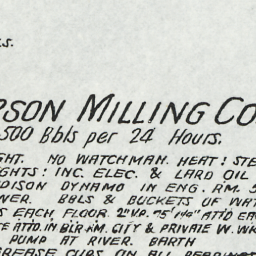 S.
PSON MILLING CO
500 Bbls per 24 Hours.
GHT. NO WATCHMAN. HEAT: STE
GHTS: INC. ELEC. & LARD OIL
DISON DYNAMO IN ENG. RM. S
WER. BBLS & BUCKETS OF WAT
S EACH FLOOR. 2" V.P. 75' 1¼" ATT'D EA
E ATT'D. IN BLR HM. CITY & PRIVATE W. WK
PUMP AT RIVER. BARTH
GREASE CUPS ON ALL BEARINGS